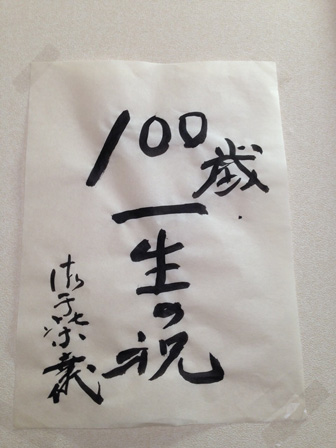 100歳
一生の祝